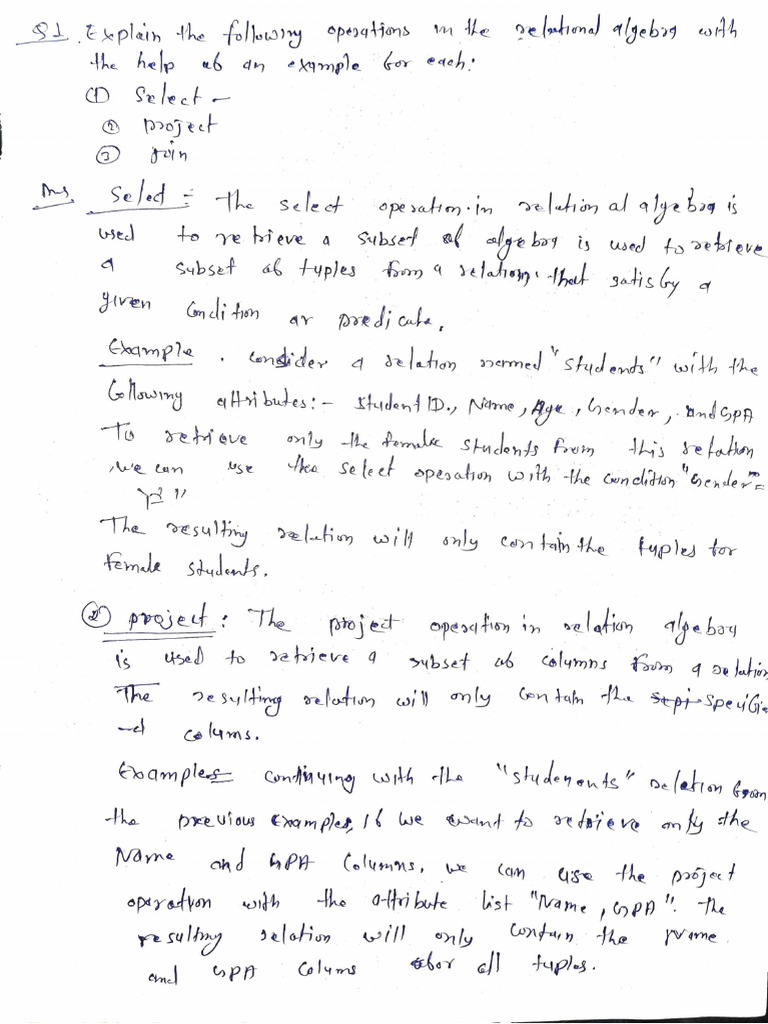 Q1. Explain the following operations in the relational algebra with
the help of an example for each:
① Select -
② project
③ join
Ans Select = The select operation in relational algebra is
used to retrieve a subset of algebra is used to retrieve
a subset of tuples from a relation that satisfy a
given condition or predicate.
Example. Consider a relation named "students" with the
following attributes:- Student ID., Name, Age, Gender, and GPA
To retrieve only the female students from this relation
, we can use the select operation with the condition "Gender =
The resulting relation will only contain the tuples for
female students.
② project: The project operation in relation algebra
is used to retrieve a subset of columns from a relation
The resulting relation will only contain the specifie
-d colums.
Examples continuing with the "studenents" relation from
the previous examples, if we want to retrieve only the
Name and GPA Columns, we can use the project
operation with the attribute list "Name, GPA". The
resulting relation will only contain the Name
and GPA colums for all tuples.